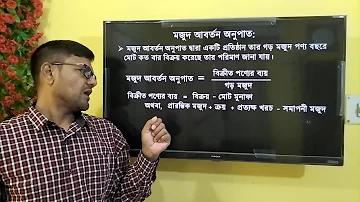 মজুদ আবর্তন অনুপাত:
➢ মজুদ আবর্তন অনুপাত দ্বারা একটি প্রতিষ্ঠান তার গড় মজুদ পণ্য বছরে
মোট কত বার বিক্রয় করেছে তার পরিমাণ জানা যায়।
মজুদ আবর্তন অনুপাত = বিক্রীত পণ্যের ব্যয়
গড় মজুদ
বিক্রীত পণ্যের ব্যয় = বিক্রয় - মোট মুনাফা
অথবা, প্রারম্ভিক মজুদ + ক্রয় + প্রত্যক্ষ খরচ - সমাপনী মজুদ